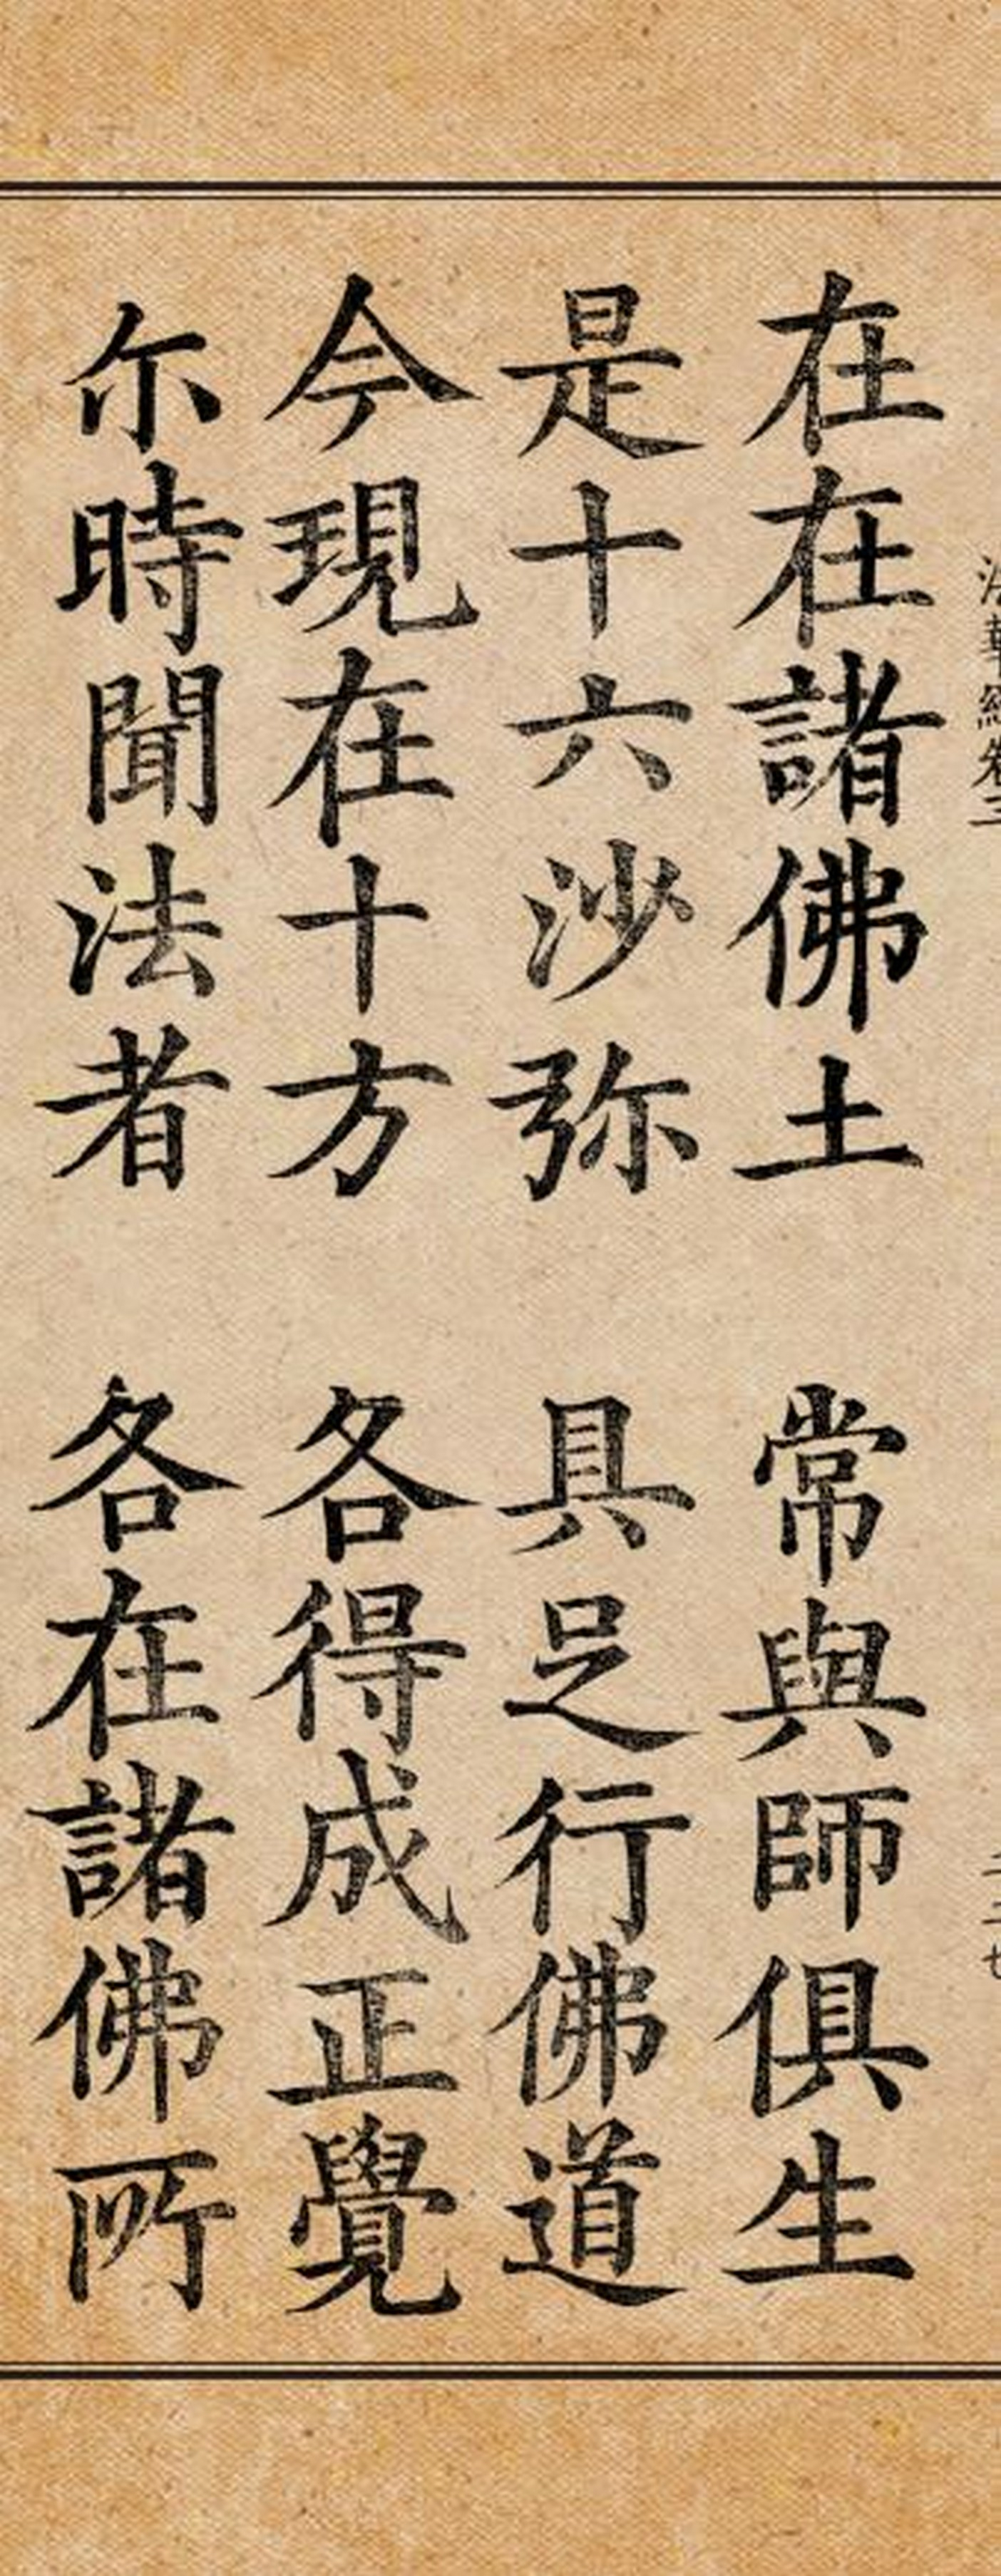 法華經卷三 二二七
在在諸佛土 常與師俱生
是十六沙弥 具足行佛道
今現在十方 各得成正覺
尒時聞法者 各在諸佛所